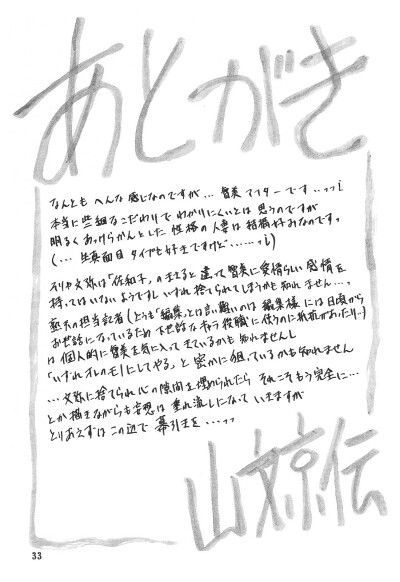 あとがき
なんとも へんな感じなのですが… 智美アフターです…っっ!
本当に些細なこだわりで わかりにくいとは 思うのですが
明るく あっけらかんとした 性格の人妻は 結構好みなのですっ
(… 生真面目タイプも好きですけど……っ!)
「佐和子」の
と違って智美に愛情らしい感情を
持ってはいないようですし いずれ捨てられてしまうかも知れません…、
の担当記者(どうも「編集」とは言い難いのは 編集様には日頃から
お世話になっているため 下世話なキャラ役職に使うのに抵抗があったり…)
は個人的に智美を気に入ってきているかも知れませんし
「いずれオレのモノにしてやる」と 密かに狙っているかも知れません
…文弥に捨てられ心の隙間を埋められたら それこそもう完全に…
とか描きながらも妄想は 垂れ流しになって いきますが
とりあえずはこの辺で 幕引きを…っっ
山文京伝
33